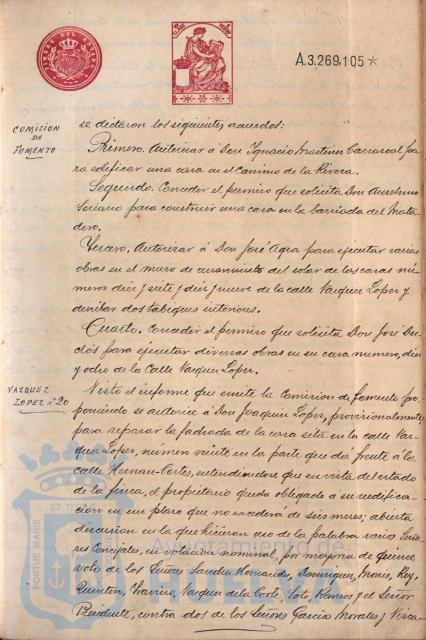 A.3.269.105*
COMISION
DE
FOMENTO
se dictaron los siguientes acuerdos:
Primero. Autorizar á Don Ignacio Martinez Carrascal pa
ra edificar una casa en el Camino de la Rivera.
Segundo. Conceder el permiso que solicita Don Aurelino
Soriano para construir una casa en la barriada del Mata
dero.
Tercero. Autorizar á Don José Agea para ejecutar varias
obras en el muro de cerramiento del solar de las casas nú-
meros diez y siete y diez y nueve de la calle Vazquez Lopez y
derribar dos tabiques interiores.
Cuarto. Conceder el permiso que solicita Don José Du
clós para ejecutar diversas obras en su casa numero diez
y ocho de la Calle Vazquez Lopez.
VAZQUEZ
LOPEZ nº 20
Visto el informe que emite la Comision de fomento pro
poniendo se autorice á Don Joaquin Lopez, provisionalmente,
para reparar la fachada de la casa sita en la calle Vaz
quez Lopez, número veinte en la parte que dá frente á la
calle Hernan-Cortes, entendiendose que en vista del estado
de la finca, el propietario queda obligado á su reedifica-
cion en un plazo que no excederá de seis meses; abierta
discusion en la que hicieron uso de la palabra varios Seño
res Concejales, en votacion nominal, por mayoria de quince
votos de los Señores Hernandez, Dominguez, Rey,
Quintero, Vazquez de la Corte, Soto, Ramos y el Señor
Presidente, contra dos de los Señores Garcia Morales y
PORTUS MARIS
Ayuntamiento de